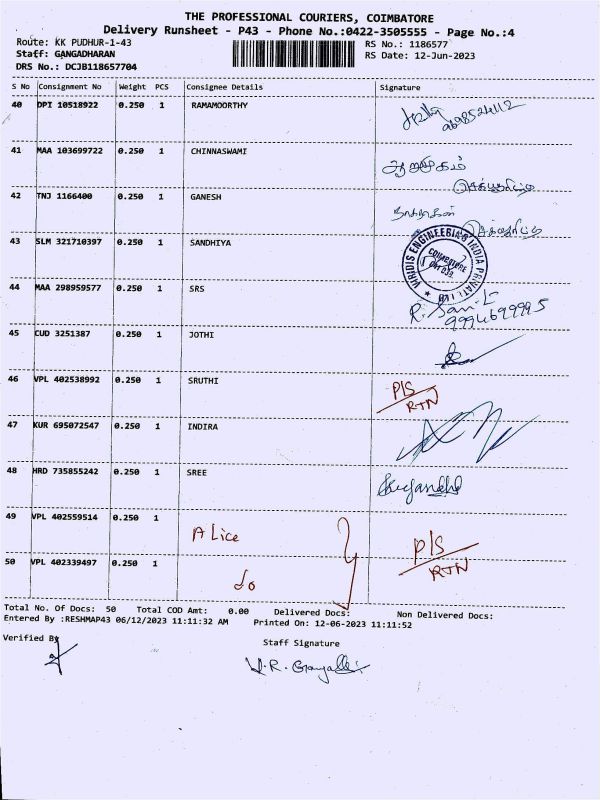 THE PROFESSIONAL COURIERS, COIMBATORE
Delivery Runsheet - P43 - Phone No.:0422-3505555 - Page No.:4
Route: KK PUDHUR-1-43 RS No.: 1186577
Staff: GANGADHARAN RS Date: 12-Jun-2023
DRS No.: DCJB118657704
S No Consignment No Weight PCS Consignee Details Signature
40 DPI 10518922 0.250 1 RAMAMOORTHY
41 MAA 103699722 0.250 1 CHINNASWAMI
ஆறுமுகம்
42 TNJ 1166400 0.250 1 GANESH
43 SLM 321710397 0.250 1 SANDHIYA
VINDIS ENGINEERING INDIA PRIVATE LTD
COIMBATORE
44 MAA 298959577 0.250 1 SRS
9994699995
45 CUD 3251387 0.250 1 JOTHI
46 VPL 402538992 0.250 1 SRUTHI P/S
RTN
47 KUR 695072547 0.250 1 INDIRA
48 HRD 735855242 0.250 1 SREE
49 VPL 402559514 0.250 1 Alice P/S
RTN
50 VPL 402339497 0.250 1 do
Total No. Of Docs: 50 Total COD Amt: 0.00 Delivered Docs: Non Delivered Docs:
Entered By :RESHMAP43 06/12/2023 11:11:32 AM Printed On: 12-06-2023 11:11:52
Verified By Staff Signature